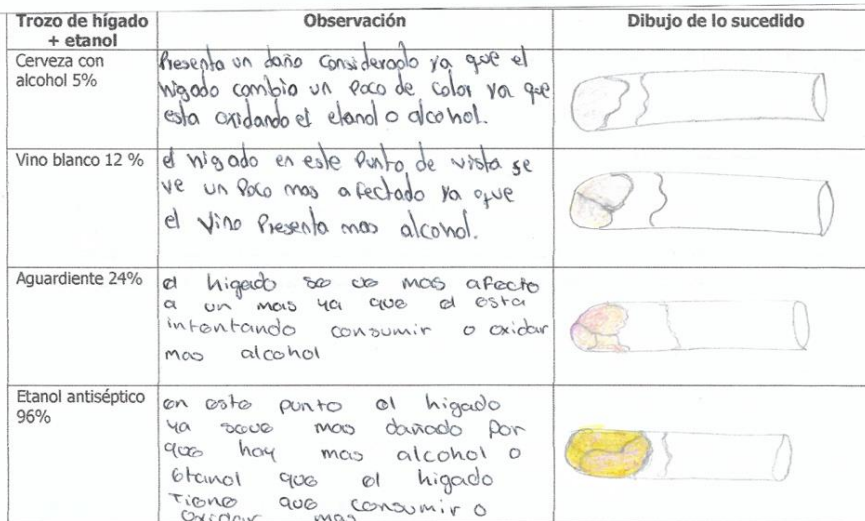 Trozo de hígado + etanol
Observación
Dibujo de lo sucedido
Cerveza con alcohol 5%
Presenta un daño considerado ya que el
higado cambio un poco de color ya que
esta oxidando el etanol o alcohol.
Vino blanco 12 %
el higado en este punto de vista se
ve un poco mas afectado ya que
el vino Presenta mas alcohol.
Aguardiente 24%
el higado se ve mas afecto
a un mas ya que el esta
intentando consumir o oxidar
mas alcohol
Etanol antiséptico 96%
en este punto el higado
ya seve mas dañado por
que hay mas alcohol o
etanol que el higado
Tiene que consumir o
oxidar mas